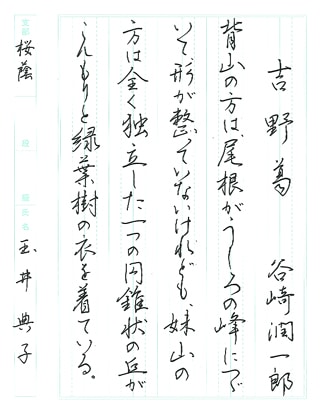 吉野葛　谷崎潤一郎
背山の方は、尾根がうしろの峰につづ
いて形が整っていないけれども、妹山の
方は全く独立した一つの円錐状の丘が
こんもりと緑葉樹の衣を着ている。
支部 桜蔭 段 級 氏名 玉井典子